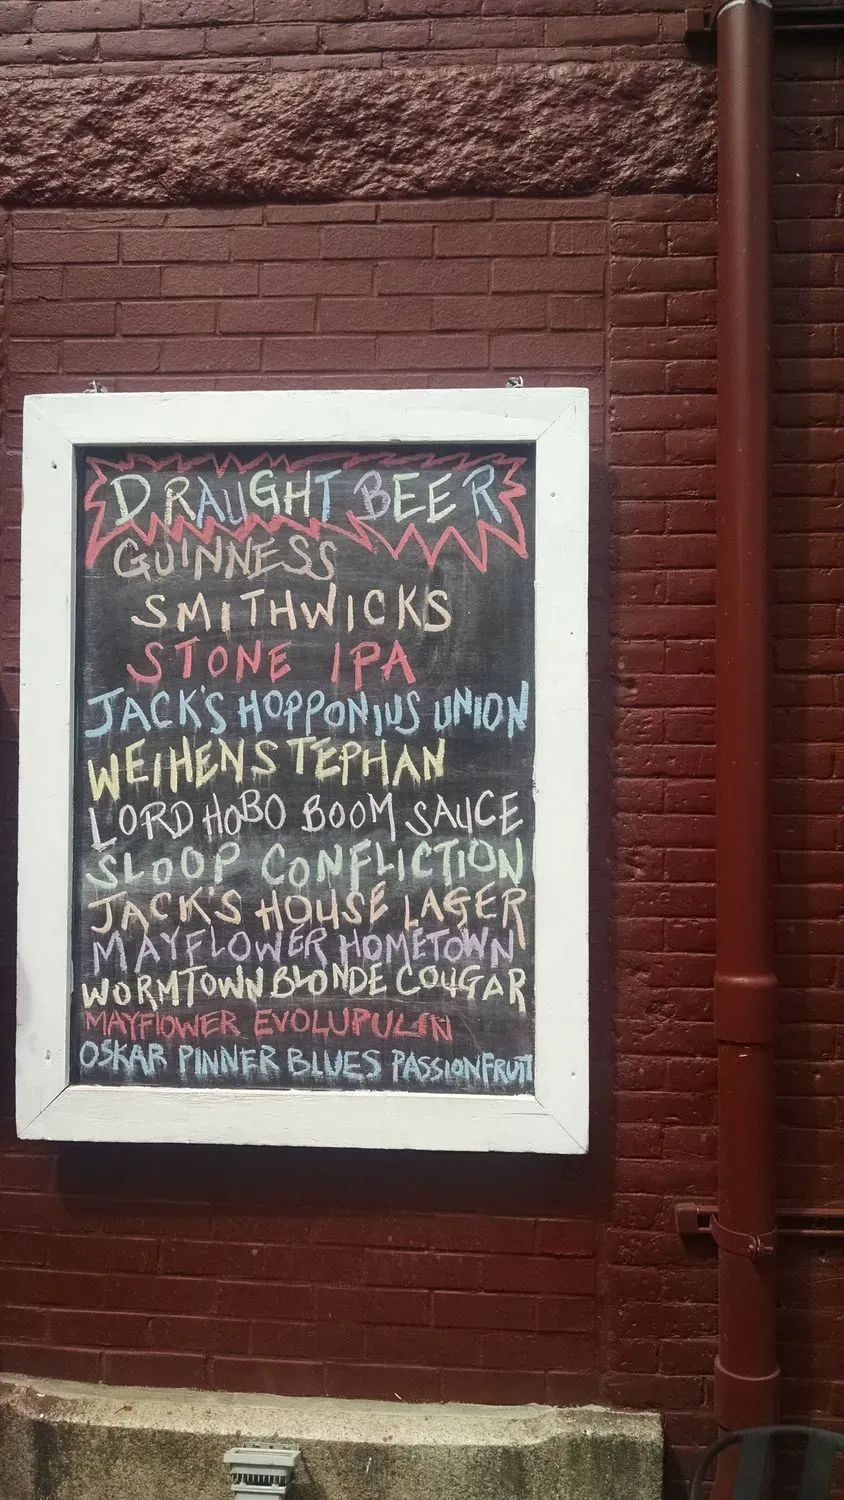 DRAUGHT BEER
GUINNESS
SMITHWICKS
STONE IPA
JACK'S HOPPONIUS UNION
WEIHENSTEPHAN
LORD HOBO BOOM SAUCE
SLOOP CONFLICTION
JACK'S HOUSE LAGER
MAYFLOWER HOMETOWN
WORMTOWN BLONDE COUGAR
MAYFLOWER EVOLUPULIN
OSKAR PINNER BLUES PASSIONFRUIT